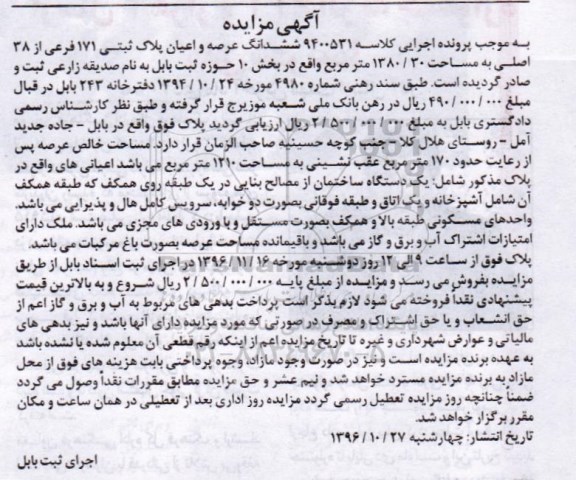 آگهی مزایده
به موجب پرونده اجرایی کلاسه ۹۴۰۰۵۳۱ ششدانگ عرصه و اعیان پلاک ثبتی ۱۷۱ فرعی از ۳۸
اصلی به مساحت ۱۳۸۰/۳۰ متر مربع واقع در بخش ۱۰ حوزه ثبت بابل به نام صدیقه زارعی ثبت و
صادر گردیده است. طبق سند رهنی شماره ۴۹۸۰ مورخه ۱۳۹۴/۱۰/۲۴ دفترخانه ۲۴۳ بابل در قبال
مبلغ ۴۹۰/۰۰۰/۰۰۰ ریال در رهن بانک ملی شعبه موزیرج قرار گرفته و طبق نظر کارشناس رسمی
دادگستری بابل به مبلغ ۲/۵۰۰/۰۰۰/۰۰۰ ریال ارزیابی گردید پلاک فوق واقع در بابل - جاده جدید
آمل - روستای هلال کلا - جنب کوچه حسینیه صاحب الزمان قرار دارد. مساحت خالص عرصه پس
از رعایت حدود ۱۷۰ متر مربع عقب نشینی به مساحت ۱۲۱۰ متر مربع می باشد اعیانی های واقع در
پلاک مذکور شامل: یک دستگاه ساختمان از مصالح بنایی در یک طبقه روی همکف که طبقه همکف
آن شامل آشپزخانه و یک اتاق و طبقه فوقانی بصورت دو خوابه، سرویس کامل هال و پذیرایی می باشد.
واحدهای مسکونی طبقه بالا و همکف بصورت مستقل و با ورودی های مجزی می باشد. ملک دارای
امتیازات اشتراک آب و برق و گاز می باشد و باقیمانده مساحت عرصه بصورت باغ مرکبات می باشد.
پلاک فوق از ساعت ۹ الی ۱۲ روز دوشنبه مورخه ۱۳۹۶/۱۱/۱۶ در اجرای ثبت اسناد بابل از طریق
مزایده بفروش می رسد و مزایده از مبلغ پایه ۲/۵۰۰/۰۰۰/۰۰۰ ریال شروع و به بالاترین قیمت
پیشنهادی نقدا فروخته می شود لازم بذکر است پرداخت بدهی های مربوط به آب و برق و گاز اعم از
حق انشعاب و یا حق اشتراک و مصرف در صورتی که مورد مزایده دارای آنها باشد و نیز بدهی های
مالیاتی و عوارض شهرداری و غیره تا تاریخ مزایده اعم از اینکه رقم قطعی آن معلوم شده یا نشده باشد
به عهده برنده مزایده است و نیز در صورت وجود مازاد، وجوه پرداختی بابت هزینه های فوق از محل
مازاد به برنده مزایده مسترد خواهد شد و نیم عشر و حق مزایده مطابق مقررات نقداً وصول می گردد
ضمناً چنانچه روز مزایده تعطیل رسمی گردد مزایده روز اداری بعد از تعطیلی در همان ساعت و مکان
مقرر برگزار خواهد شد.
تاریخ انتشار: چهارشنبه ۱۳۹۶/۱۰/۲۷
اجرای ثبت بابل